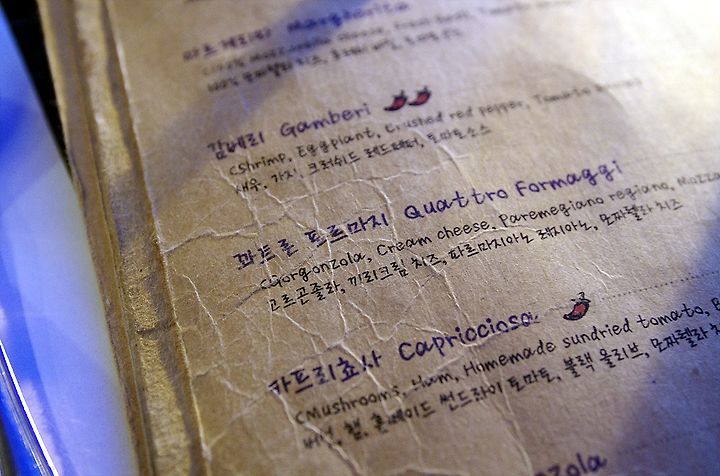 마르게리따 Margherita
100% 모짜렐라 치즈, 토마토소스
감베리 Gamberi
(shrimp, Eggplant, Crushed red pepper, Tomato
새우, 가지, 크러쉬드 레드페퍼, 토마토소스
꽈트로 포르마지 Quattro Formaggi
(Gorgonzola, Cream cheese, Paremegiano regiano, Mozza
고르곤졸라, 끼리크림 치즈, 파르마지아노 레지아노, 모짜렐라 치즈
카프리쵸사 Capricciosa
(Mushrooms, Ham, Homemade sundried tomato,
버섯, 햄, 홈메이드 썬드라이 토마토, 블랙 올리브, 모짜렐라 치
zola